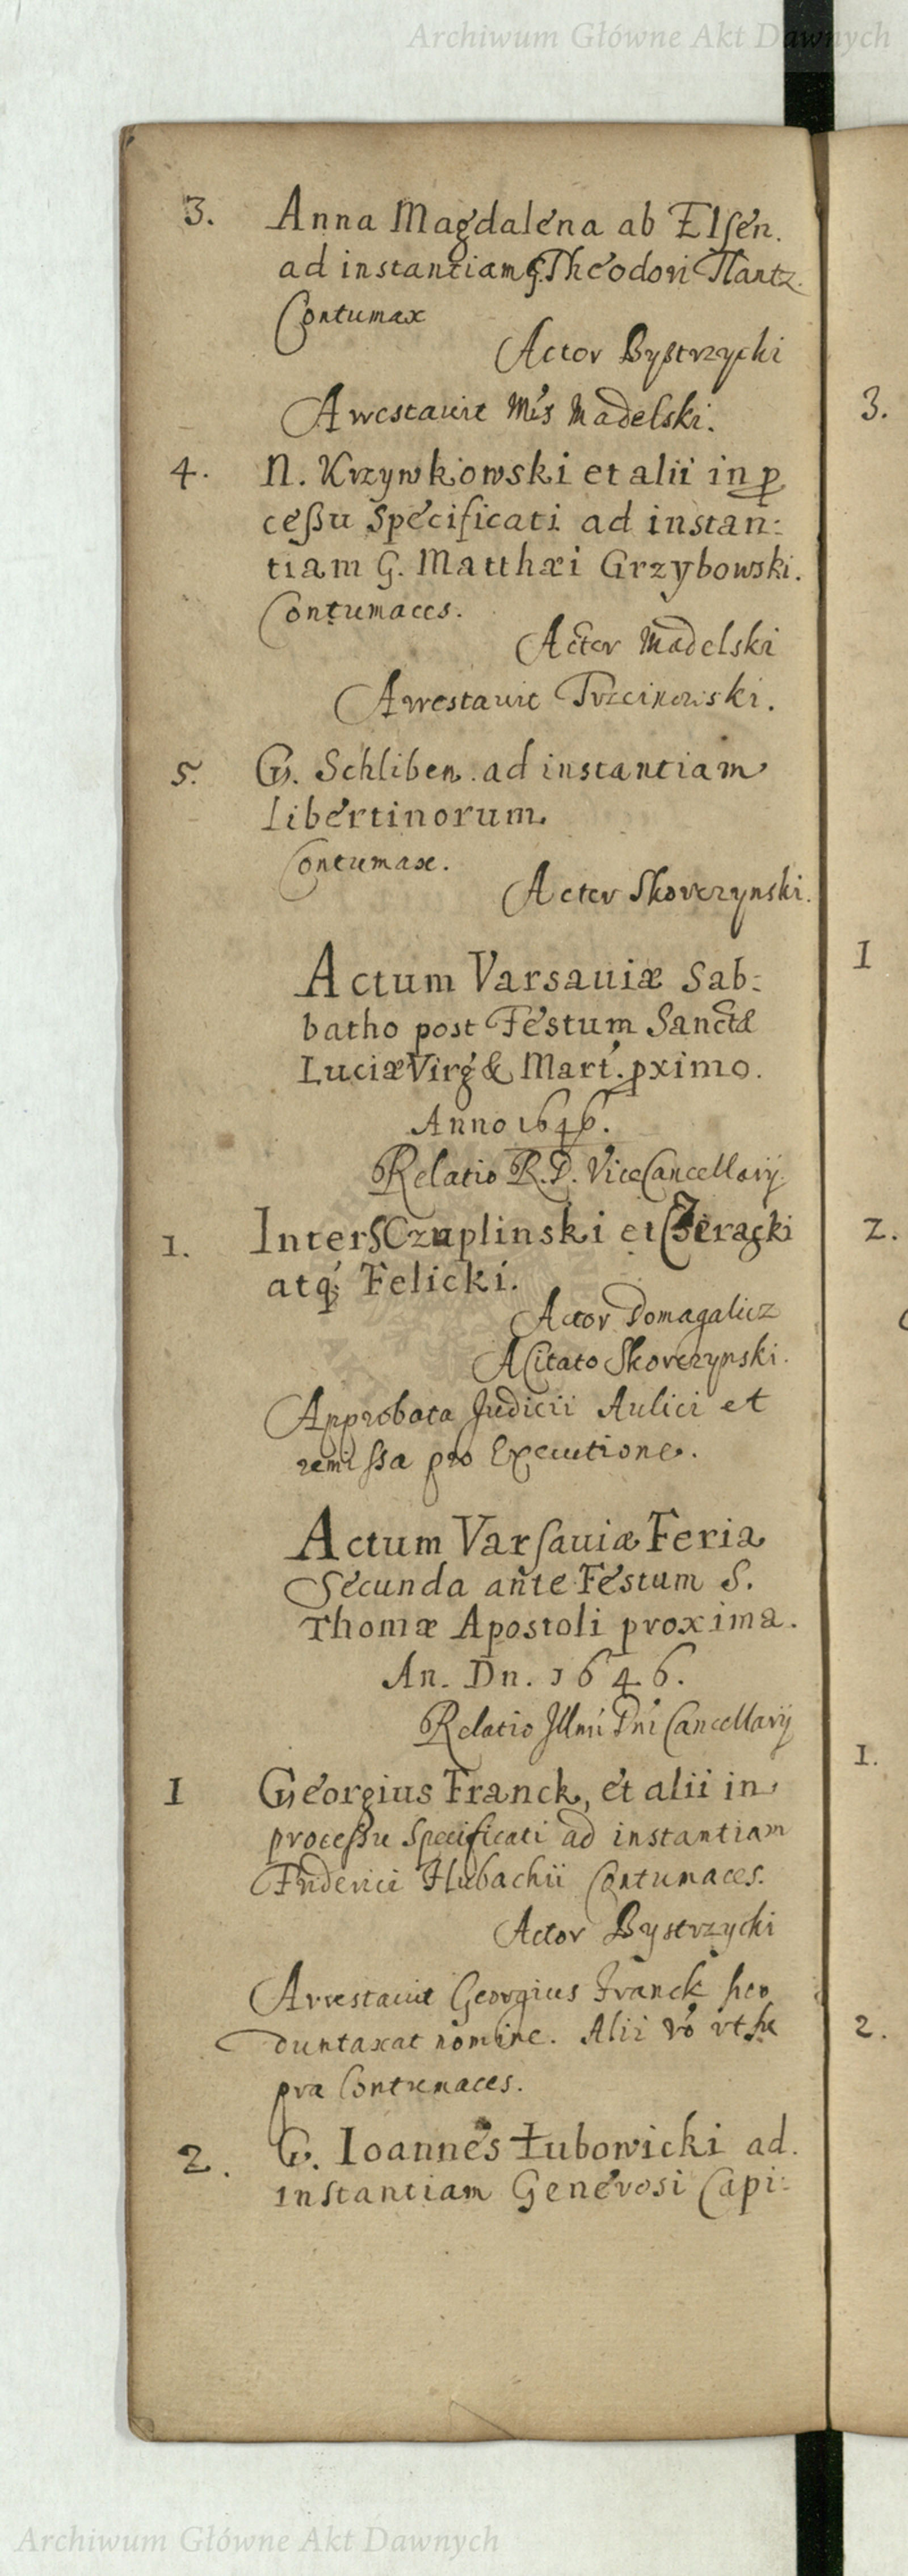 Archiwum Główne Akt Dawnych
3. Anna Magdalena ab Elsen.
ad instantiam G. Theodori Tlantz.
Contumax
Actor Bystrzycki
Arrestavit Mŕs Madelski.
4. N. Krzywkowski et alii in p
cessu specificati ad instan:
tiam G. Matthæi Grzybowski.
Contumaces.
Actor Madelski
Arrestavit Trzcinowski.
5. G. Schliben. ad instantiam
libertinorum.
Contumax.
Actor Skorczynski.
Actum Varsauiæ Sab:
batho post Festum Sanctæ
Luciæ Virg & Mart. pximo.
Anno 1646.
Relatio R. D. ViceCancellarij.
1. Inter Czaplinski et
atq; Felicki.
Actor Domagalicz
A Citato Skorczynski.
Approbata Judicii Aulici et
remissa pro Executione.
Actum Varsauiæ Feria
Secunda ante Festum S.
Thomæ Apostoli proxima.
An. Dn. 1646.
Relatio Illmi Dni Cancellarij
1 Georgius Franck, et alii in
processu specificati ad instantiam
Friderici Hubachii Contumaces.
Actor Bystrzycki
Arrestauit Georgius Franck suo
duntaxat nomine. Alii vo vt su
pra Contumaces.
2. G. Ioannes Łubowicki ad.
instantiam Generosi Capi:
3.
1
2.
1.
2.
Archiwum Główne Akt Dawnych